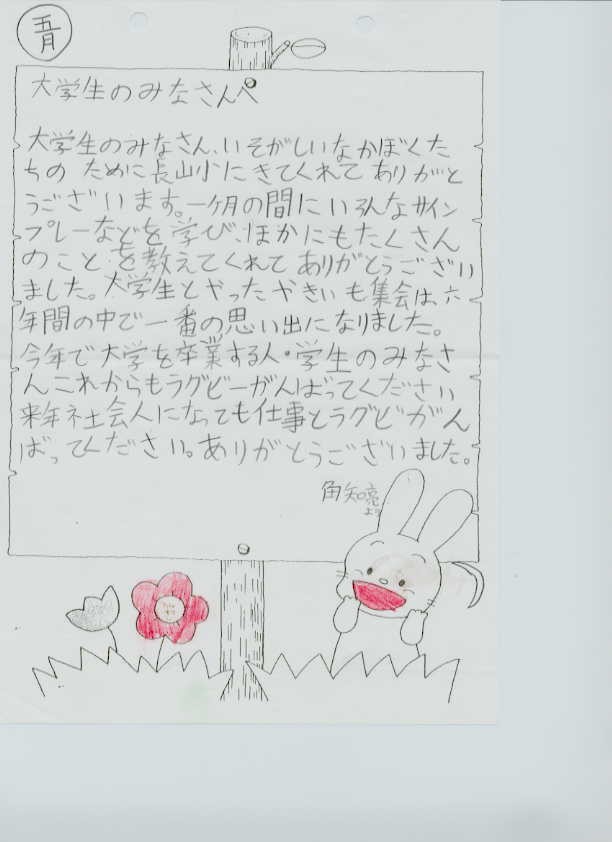 五月
大学生のみなさんへ
大学生のみなさん、いそがしいなかぼくた
ちの ために長山小にきてくれて ありがと
うございます。一ケ月の間にいろんなサイン
プレーなどを学び、ほかにもたくさん
のこと を教えてくれて ありがとうござい
ました。大学生とやったやきいも集会は、六
年間の中で一番の思い出になりました。
今年で大学を卒業する人・学生のみなさ
んこれからもラグビーがんばってください
来年社会人になっても仕事とラグビがん
ばってください。ありがとうございました。
角知亮
より